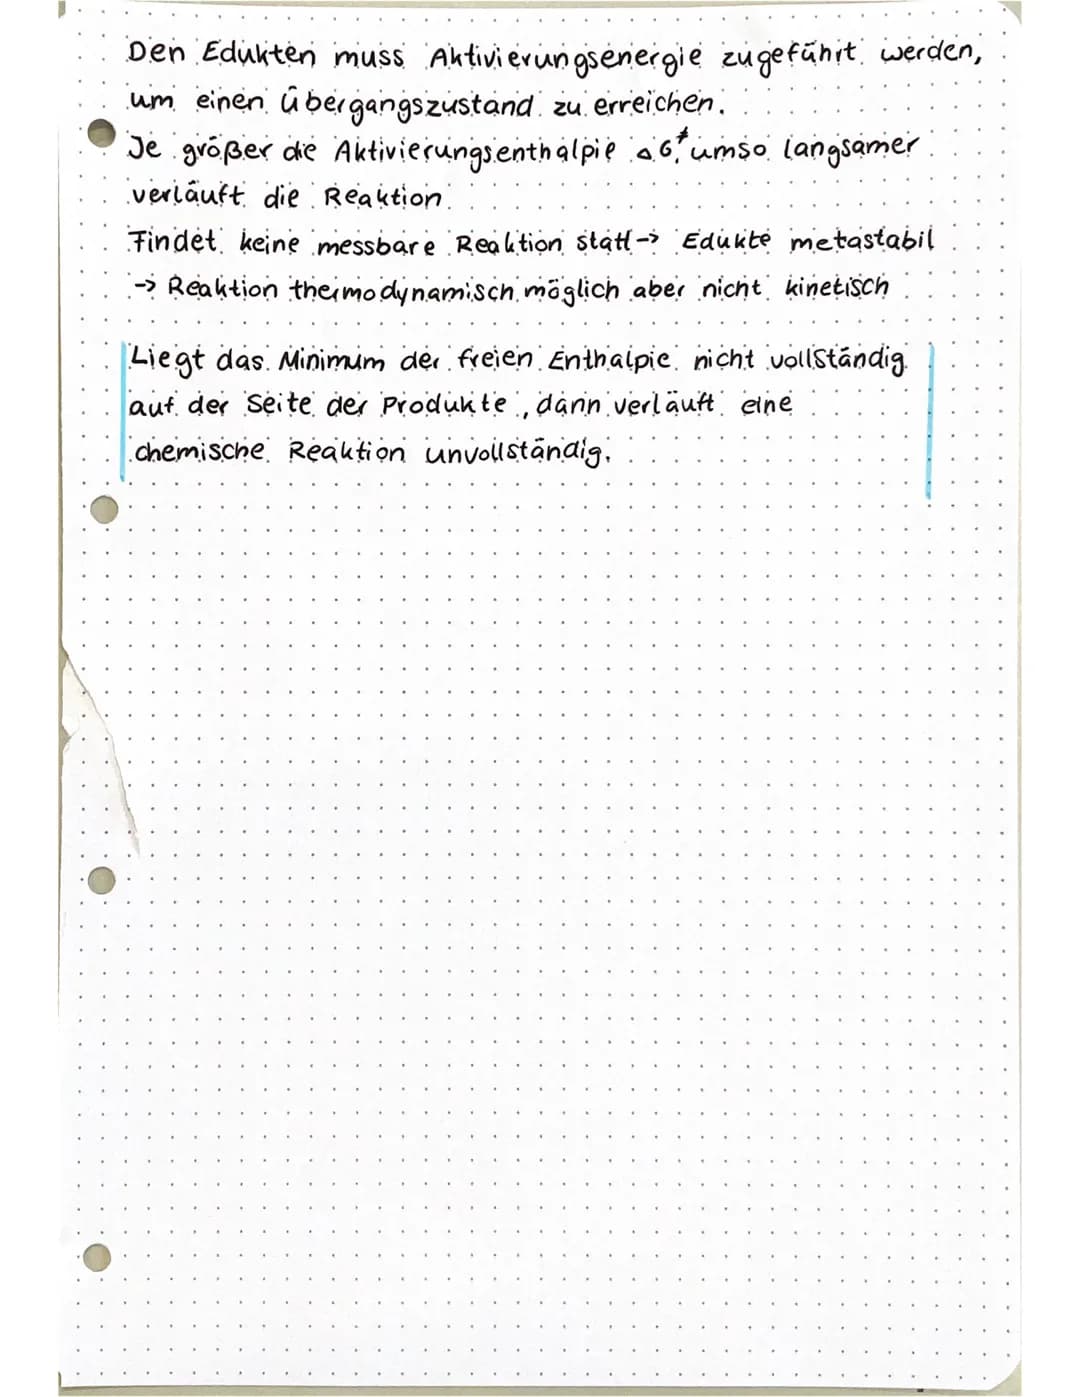 Den Edukten muss Aktivierungsenergie zugeführt werden,
um einen Übergangszustand zu erreichen.
Je größer die Aktivierungsenthalpie ΔG≠, umso langsamer
verläuft die Reaktion.
Findet keine messbare Reaktion statt -> Edukte metastabil
-> Reaktion thermodynamisch möglich aber nicht kinetisch
Liegt das Minimum der freien Enthalpie nicht vollständig
auf der Seite der Produkte, dann verläuft eine
chemische Reaktion unvollständig.